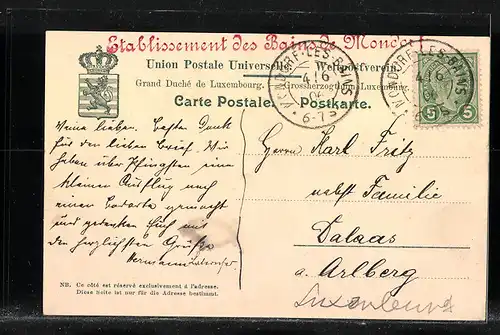 Etablissement des Bains de Mondorf
Union Postale Universelle. Weltpostverein.
Grand Duché de Luxembourg. Grossherzogthum Luxemburg.
Carte Postale. Postkarte.
MONDORF-LES-BAINS
4/6
6-7S
MONDORF-LES-BAINS
5 5
Meine Lieben. Besten Dank
für den lieben Brief. Wir
haben über Pfingsten eine
kleinen Ausflug nach
einen Badeorte gemacht
und gedenken Euch mit
den herzlichsten Grüße
Hermann
Herrn Karl Fritz
nebst Familie
Dalaas
a. Arlberg
Luxenburg
NB. Ce côté est réservé exclusivement à l'adresse.
Diese Seite ist nur für die Adresse bestimmt.